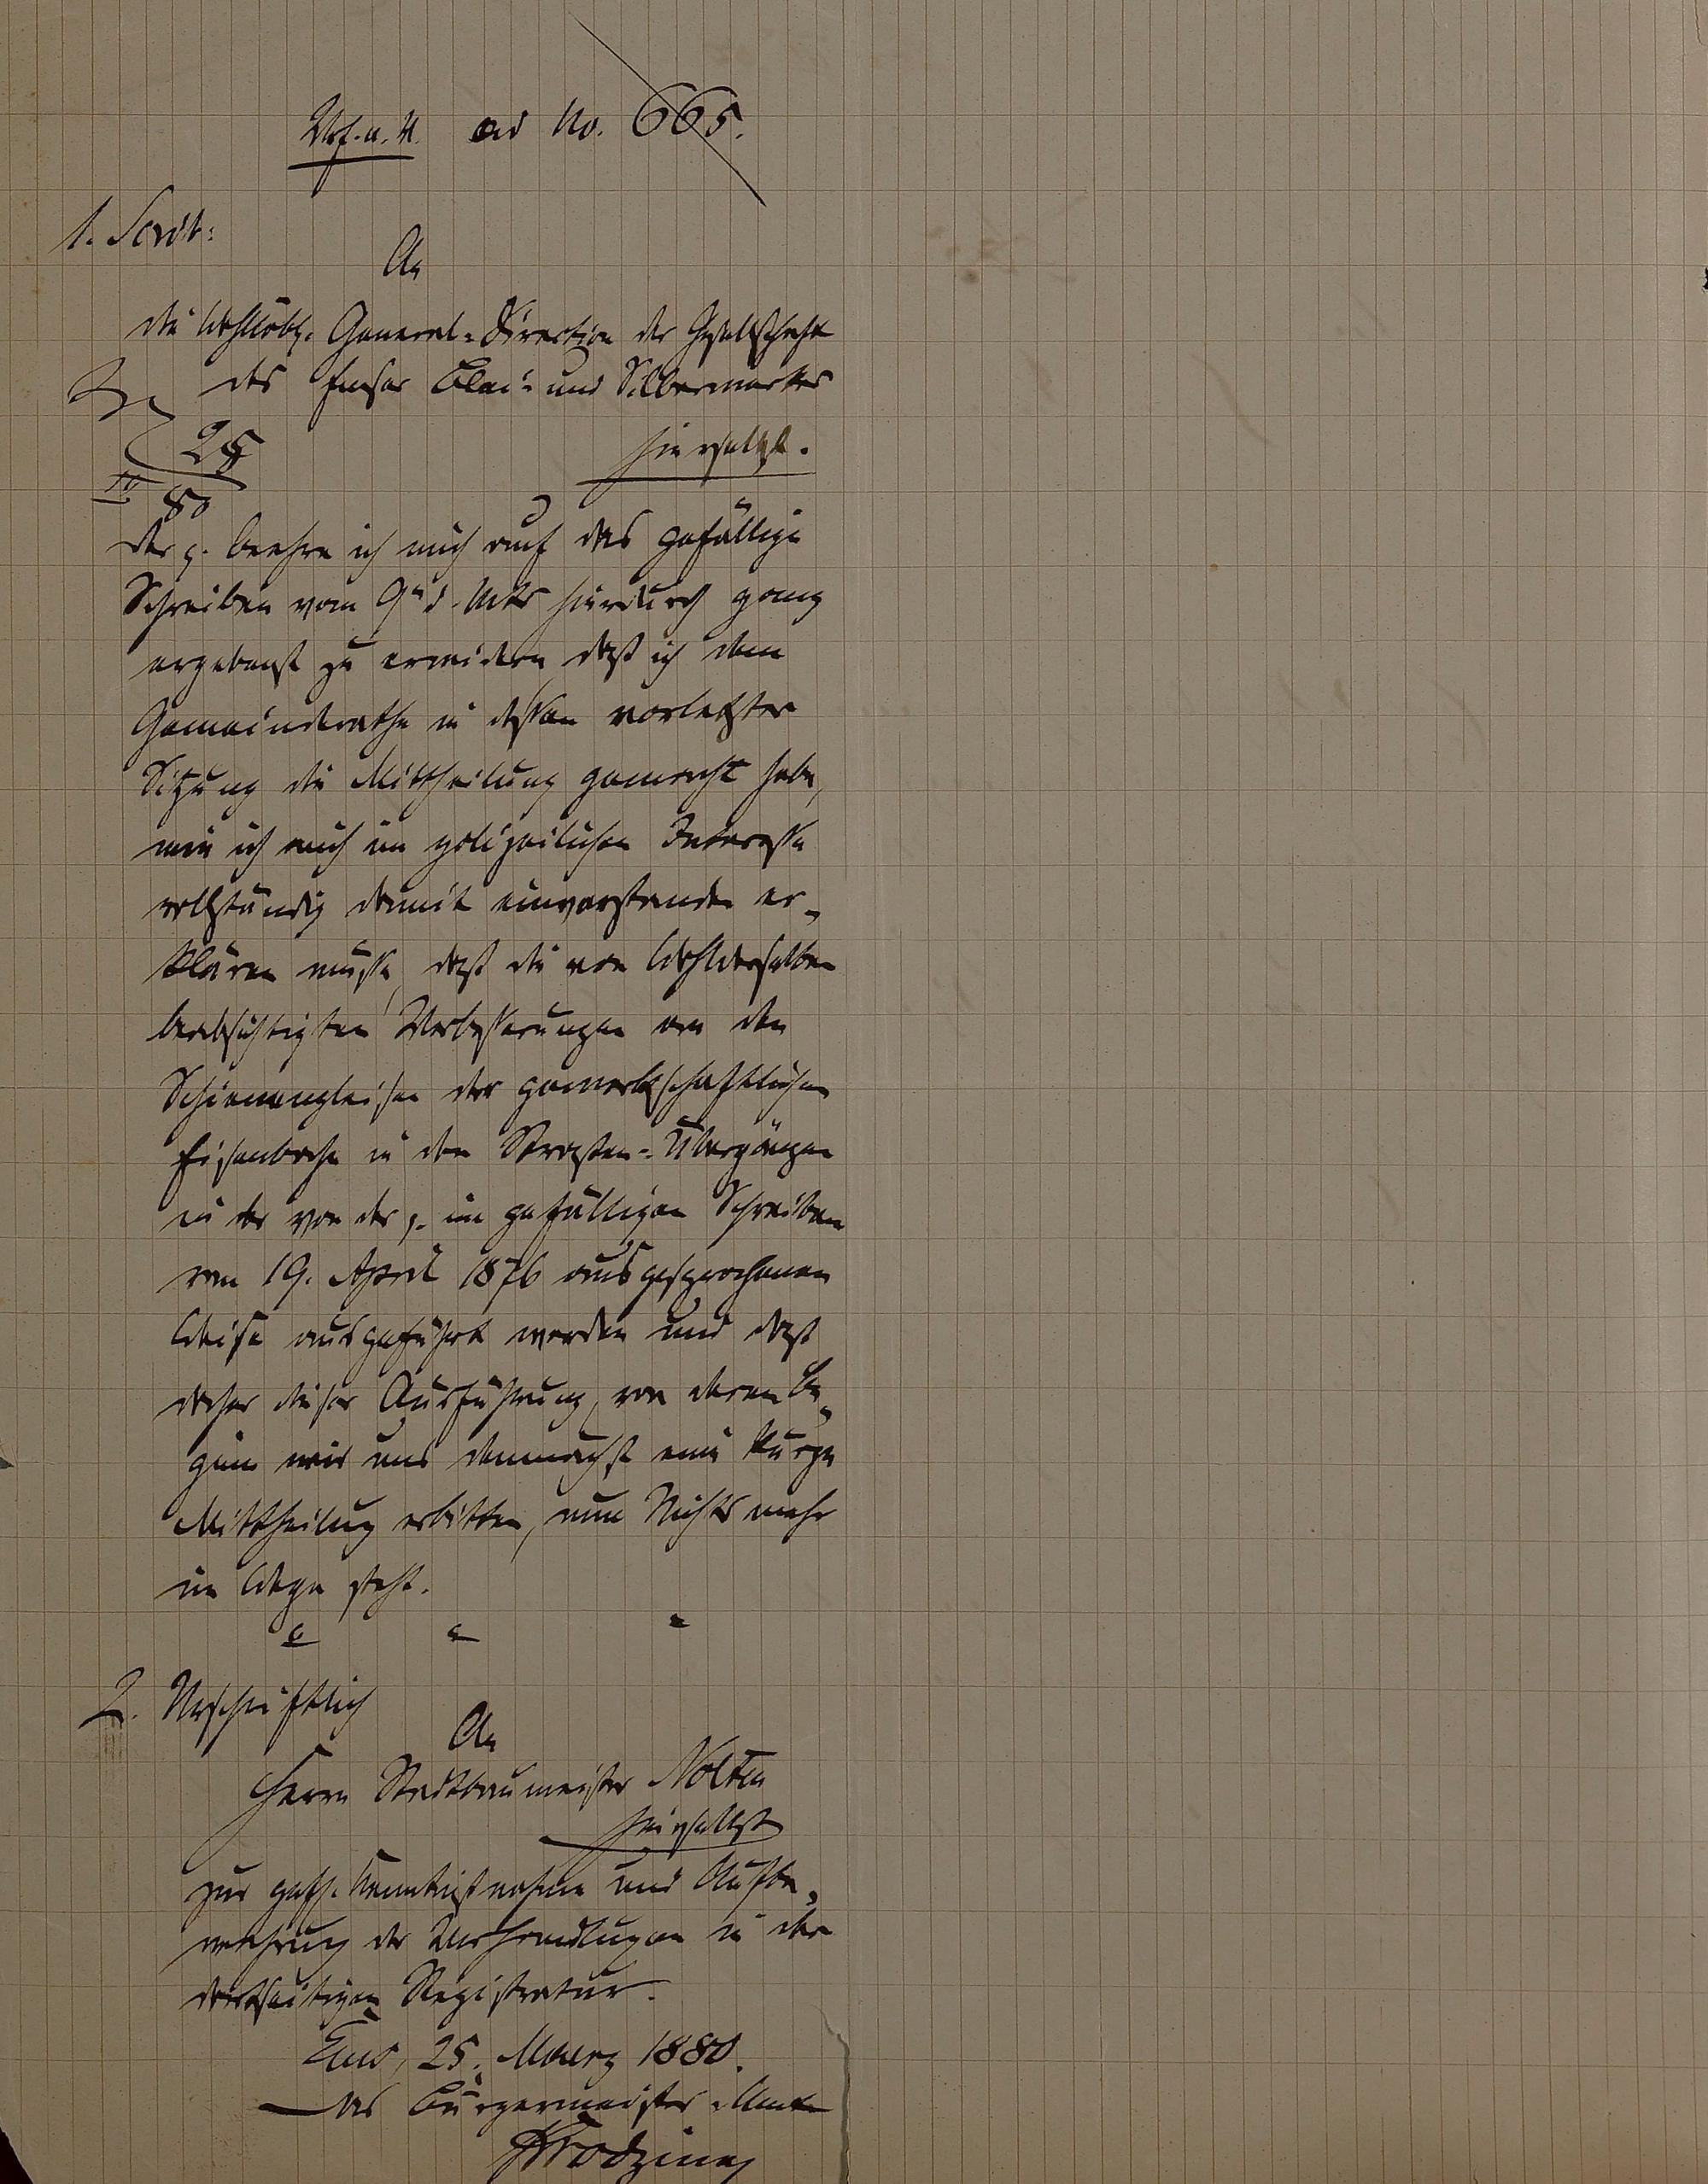 Urf. u. N. ad No. 665.
1. Scrib:
An
die Wohllöbl. General-Direction der Gesellschaft
des Emser Blei- und Silberwerks
hierselbst.
25
IV 80
Der p. beehre ich mich auf das gefällige
Schreiben vom 9ten d. Mts hierdurch ganz
ergebenst zu erwidern daß ich dem
Gemeinderathe in dessen vorletzter
Sitzung die Mittheilung gemacht habe,
wie ich mich im polizeilichen Interesse
vollständig damit einverstanden er-
klären müsse, daß die von Wohlderselben
beabsichtigten Verbesserungen an den
Schienengleisen der gewerkschaftlichen
Eisenbahn in den Strassen-Übergängen
in der von der p. im gefälligen Schreiben
vom 19. April 1876 ausgesprochenen
Weise ausgeführt werden und daß
daher dieser Ausführung, von deren Be-
ginn wir uns demnächst eine kurze
Mittheilung erbitten, nun Nichts mehr
im Wege steht.
2. Urschriftlich
An
Herrn Stadtbaumeister Nolten
hierselbst
zur gefl. Kenntnißnahme und Aufbe-
wahrung der Verhandlungen in der
dortseitigen Registratur.
Ems, 25. Maerz 1880.
Das Bürgermeister Amt